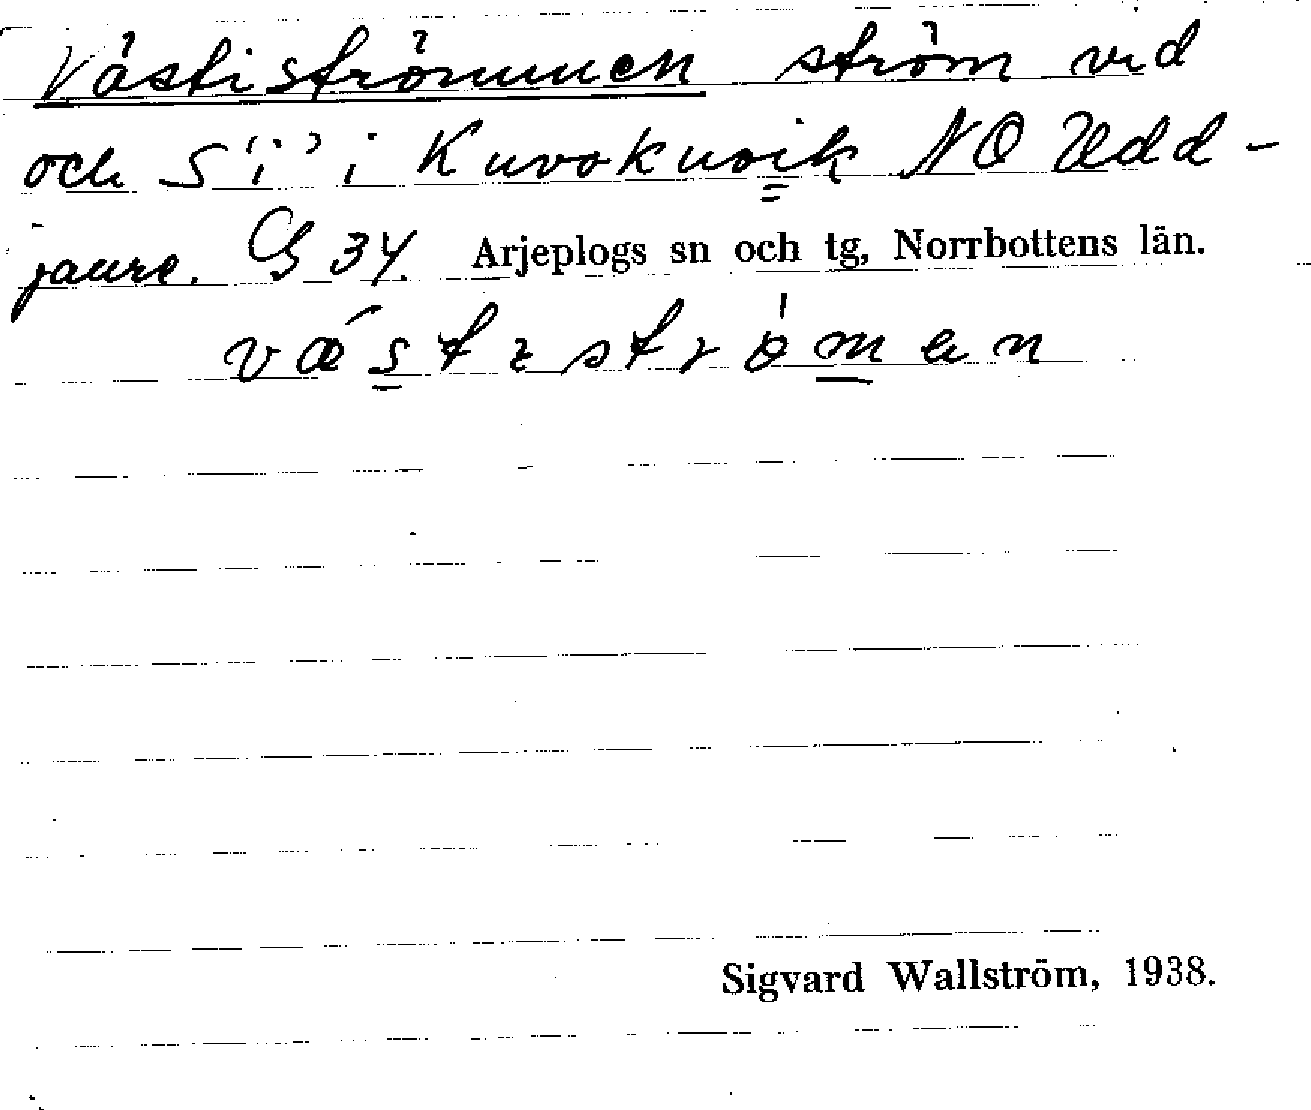 Västiströmmen ström vid
och S "i" i Kuvokuvik NO Udd-
jaure. G 34. Arjeplogs sn och tg, Norrbottens län.
væ´stɪströ`men
Sigvard Wallström, 1938.